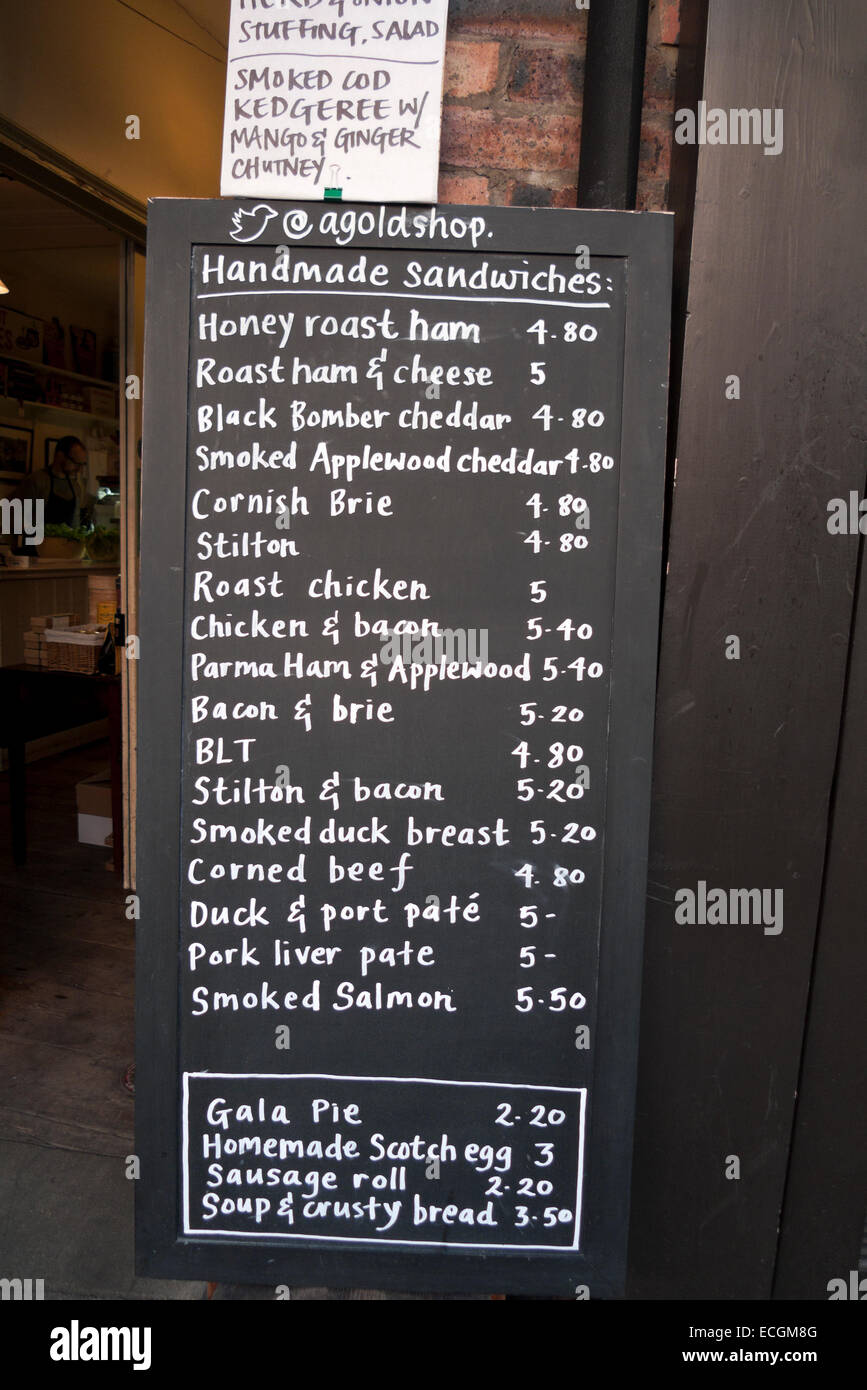 STUFFING, SALAD
SMOKED COD
KEDGEREE W/
MANGO & GINGER
CHUTNEY.
@agoldshop.
Handmade sandwiches:
Honey roast ham 4.80
Roast ham & cheese 5
Black Bomber cheddar 4-80
Smoked Applewood cheddar 4.80
Cornish Brie 4.80
Stilton 4-80
Roast chicken 5
Chicken & bacon 5-40
Parma Ham & Applewood 5-40
Bacon & brie 5-20
BLT 4.80
Stilton & bacon 5-20
Smoked duck breast 5-20
Corned beef 4.80
Duck & port paté 5-
Pork liver pate 5-
Smoked Salmon 5-50
Gala Pie 2-20
Homemade Scotch egg 3
Sausage roll 2-20
Soup & crusty bread 3-50
alamy
Image ID: ECGM8G
www.alamy.com